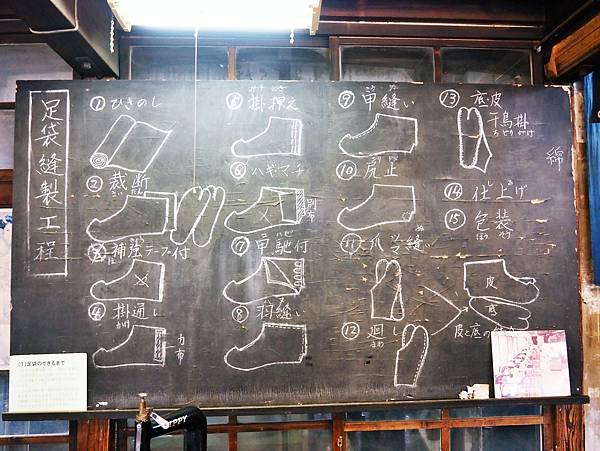 足袋縫製工程
① ひきのし
② 裁断
③ 補強テープ付
④ 掛通し
かけ
力布
⑤ 掛押え
⑥ ハギマチ
別布
⑦ 甲馳付
⑧ 羽縫い
⑨ 甲縫い
⑩ 尻止
⑪ 爪先縫い
⑫ 廻し
まわ
⑬ 底皮
千鳥掛
ちどりがけ
⑭ 仕上げ
⑮ 包装
ほうそう
皮
底
皮と底の
綿
(1)足袋のできるまで